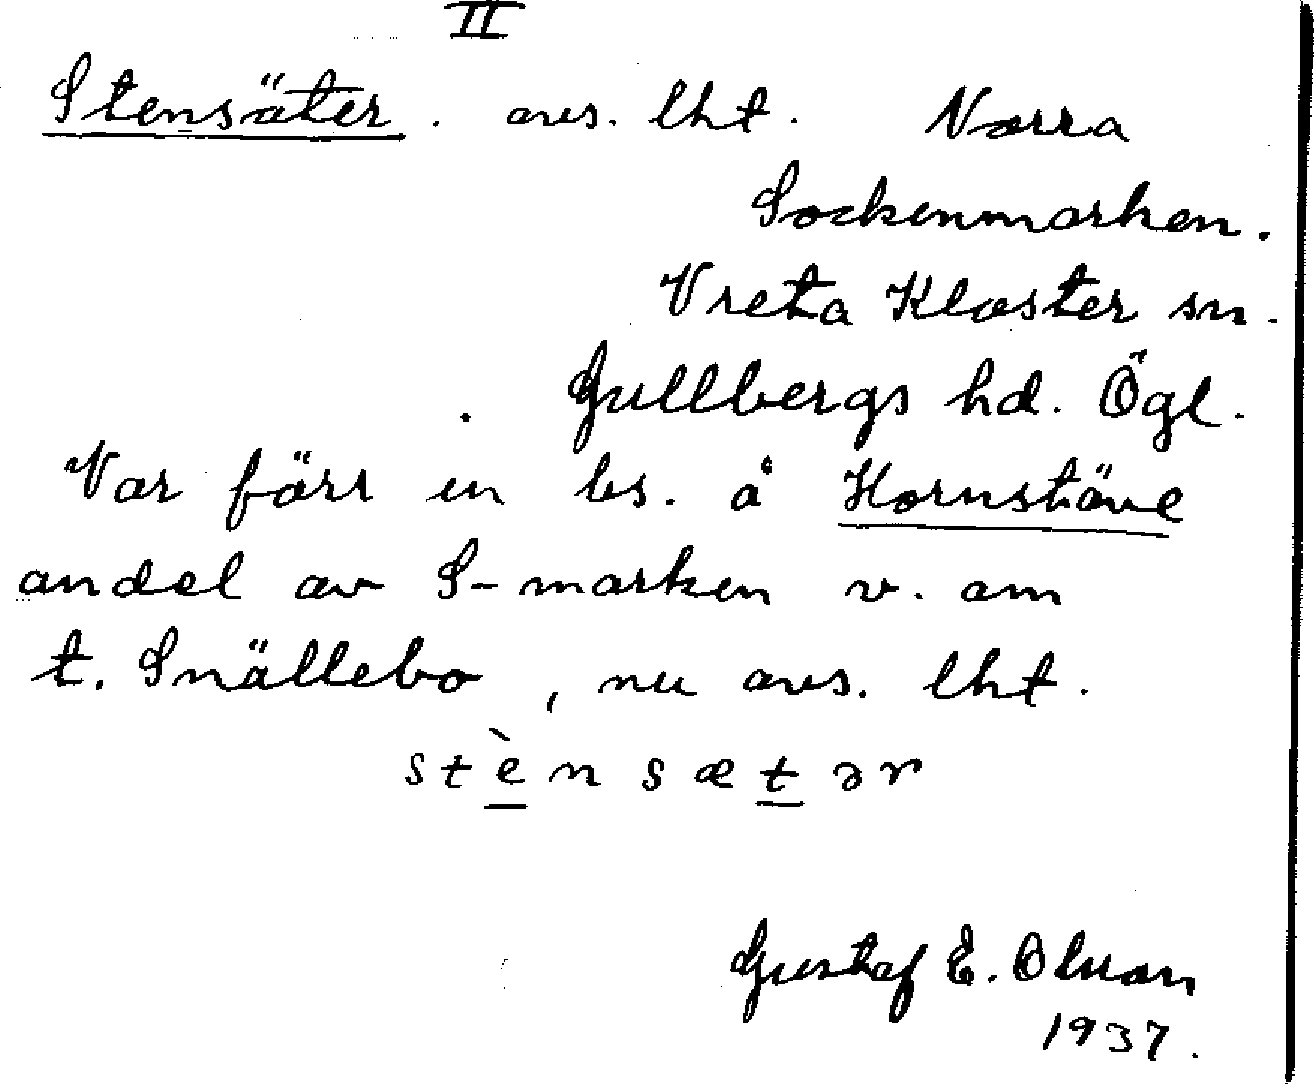 II
Stensäter. avs. lht. Norra
Sockenmarken.
Vreta Kloster sn.
Gullbergs hd. Ögl.
Var förr en bs. å Hornstäve
andel av S-marken v. om
t. Snällebo, nu avs. lht.
stènsætər
Gustaf E. Olsson
1937.